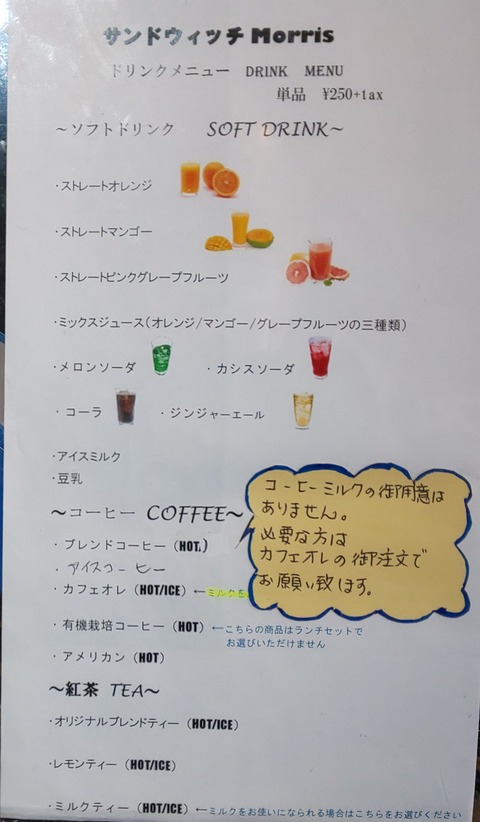 サンドウィッチ Morris
ドリンクメニュー DRINK MENU
単品 ¥250+tax
～ソフトドリンク SOFT DRINK～
・ストレートオレンジ
・ストレートマンゴー
・ストレートピンクグレープフルーツ
・ミックスジュース(オレンジ/マンゴー/グレープフルーツの三種類)
・メロンソーダ ・カシスソーダ
・コーラ ・ジンジャーエール
・アイスミルク
・豆乳
～コーヒー COFFEE～
コーヒーミルクの御用意は
ありません。
必要な方は
カフェオレの御注文で
お願い致します。
・ブレンドコーヒー (HOT)
・アイスコーヒー
・カフェオレ (HOT/ICE) ←ミルクを
・有機栽培コーヒー (HOT) ←こちらの商品はランチセットで
お選びいただけません
・アメリカン (HOT)
～紅茶 TEA～
・オリジナルブレンドティー (HOT/ICE)
・レモンティー (HOT/ICE)
・ミルクティー (HOT/ICE) ←ミルクをお使いになられる場合はこちらをお選びください